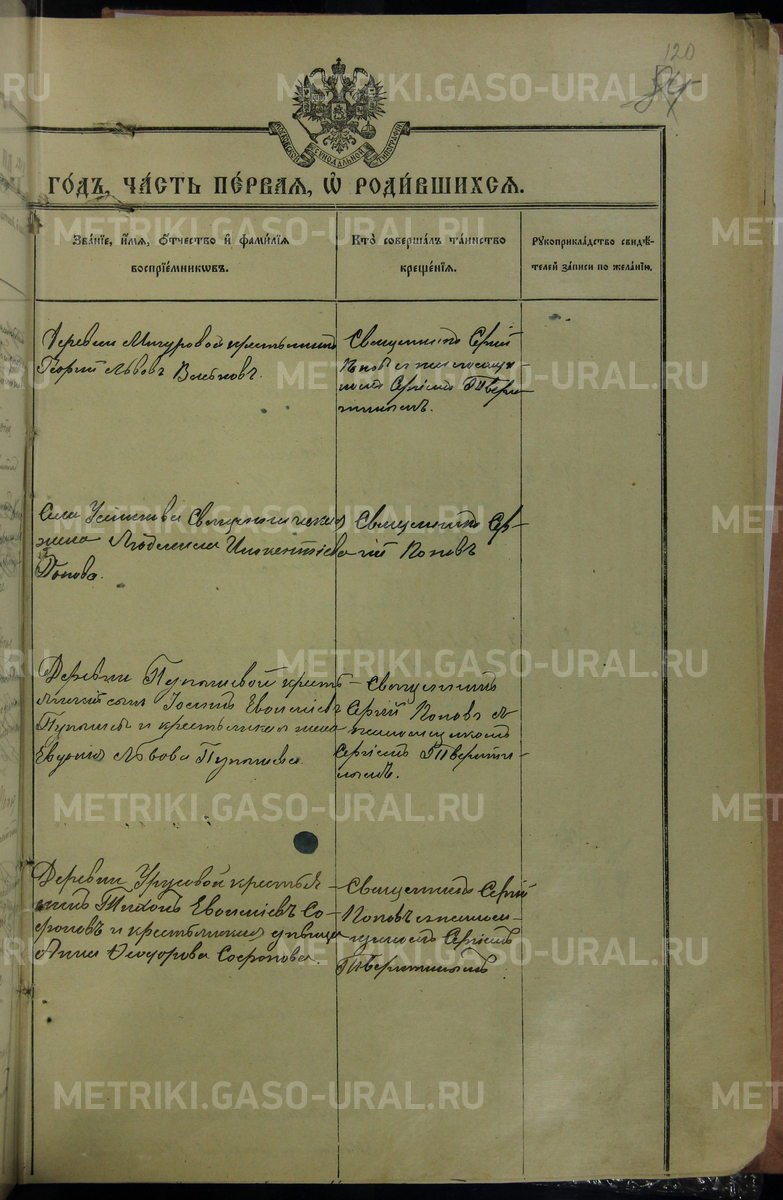 120
84
МОСКОВСКОЙ СѴНОДАЛЬНОЙ ТИПОГРАФІИ
ГО́ДЪ, ЧА́СТЬ ПЕ́РВАЯ, Ѡ РОДИ́ВШИХСЯ.
ЗВА́НІЕ, И́МЯ, О́ТЧЕСТВО И҆ ФАМИ́ЛІЯ
ВОСПРІЕ́МНИКѠВЪ.
КТО̀ СОВЕРША́ЛЪ ТА́ИНСТВО
КРЕЩЕ́НІЯ.
РУКОПРИКЛА́ДСТВО СВИДѢ́-
ТЕЛЕЙ ЗА́ПИСИ ПО ЖЕЛА́НІЮ.
Деревни крестьянинъ
Георгій Львовъ
Священникъ Сергій
Поповъ съ псаломщи-
комъ Сергіемъ Твери-
тинымъ.
Села Священническая
жена Людмила Иннокентіева
Попова.
Священникъ Сер-
гій Поповъ
Деревни Пупышевой кресть-
янскій сынъ Іосифъ
Пупышевъ и крестьянская жена
Евдокія Львова Пупышева.
Священникъ
Сергій Поповъ съ
псаломщикомъ
Сергіемъ Тверити-
нымъ.
Деревни Урусовой крестья-
нинъ Тихонъ Со-
фроновъ и крестьянская дѣвица
Анна Ѳеодорова Софронова.
Священникъ Сергій
Поповъ съ псалом-
щикомъ Сергіемъ
Тверитинымъ
METRIKI.GASO-URAL.RU